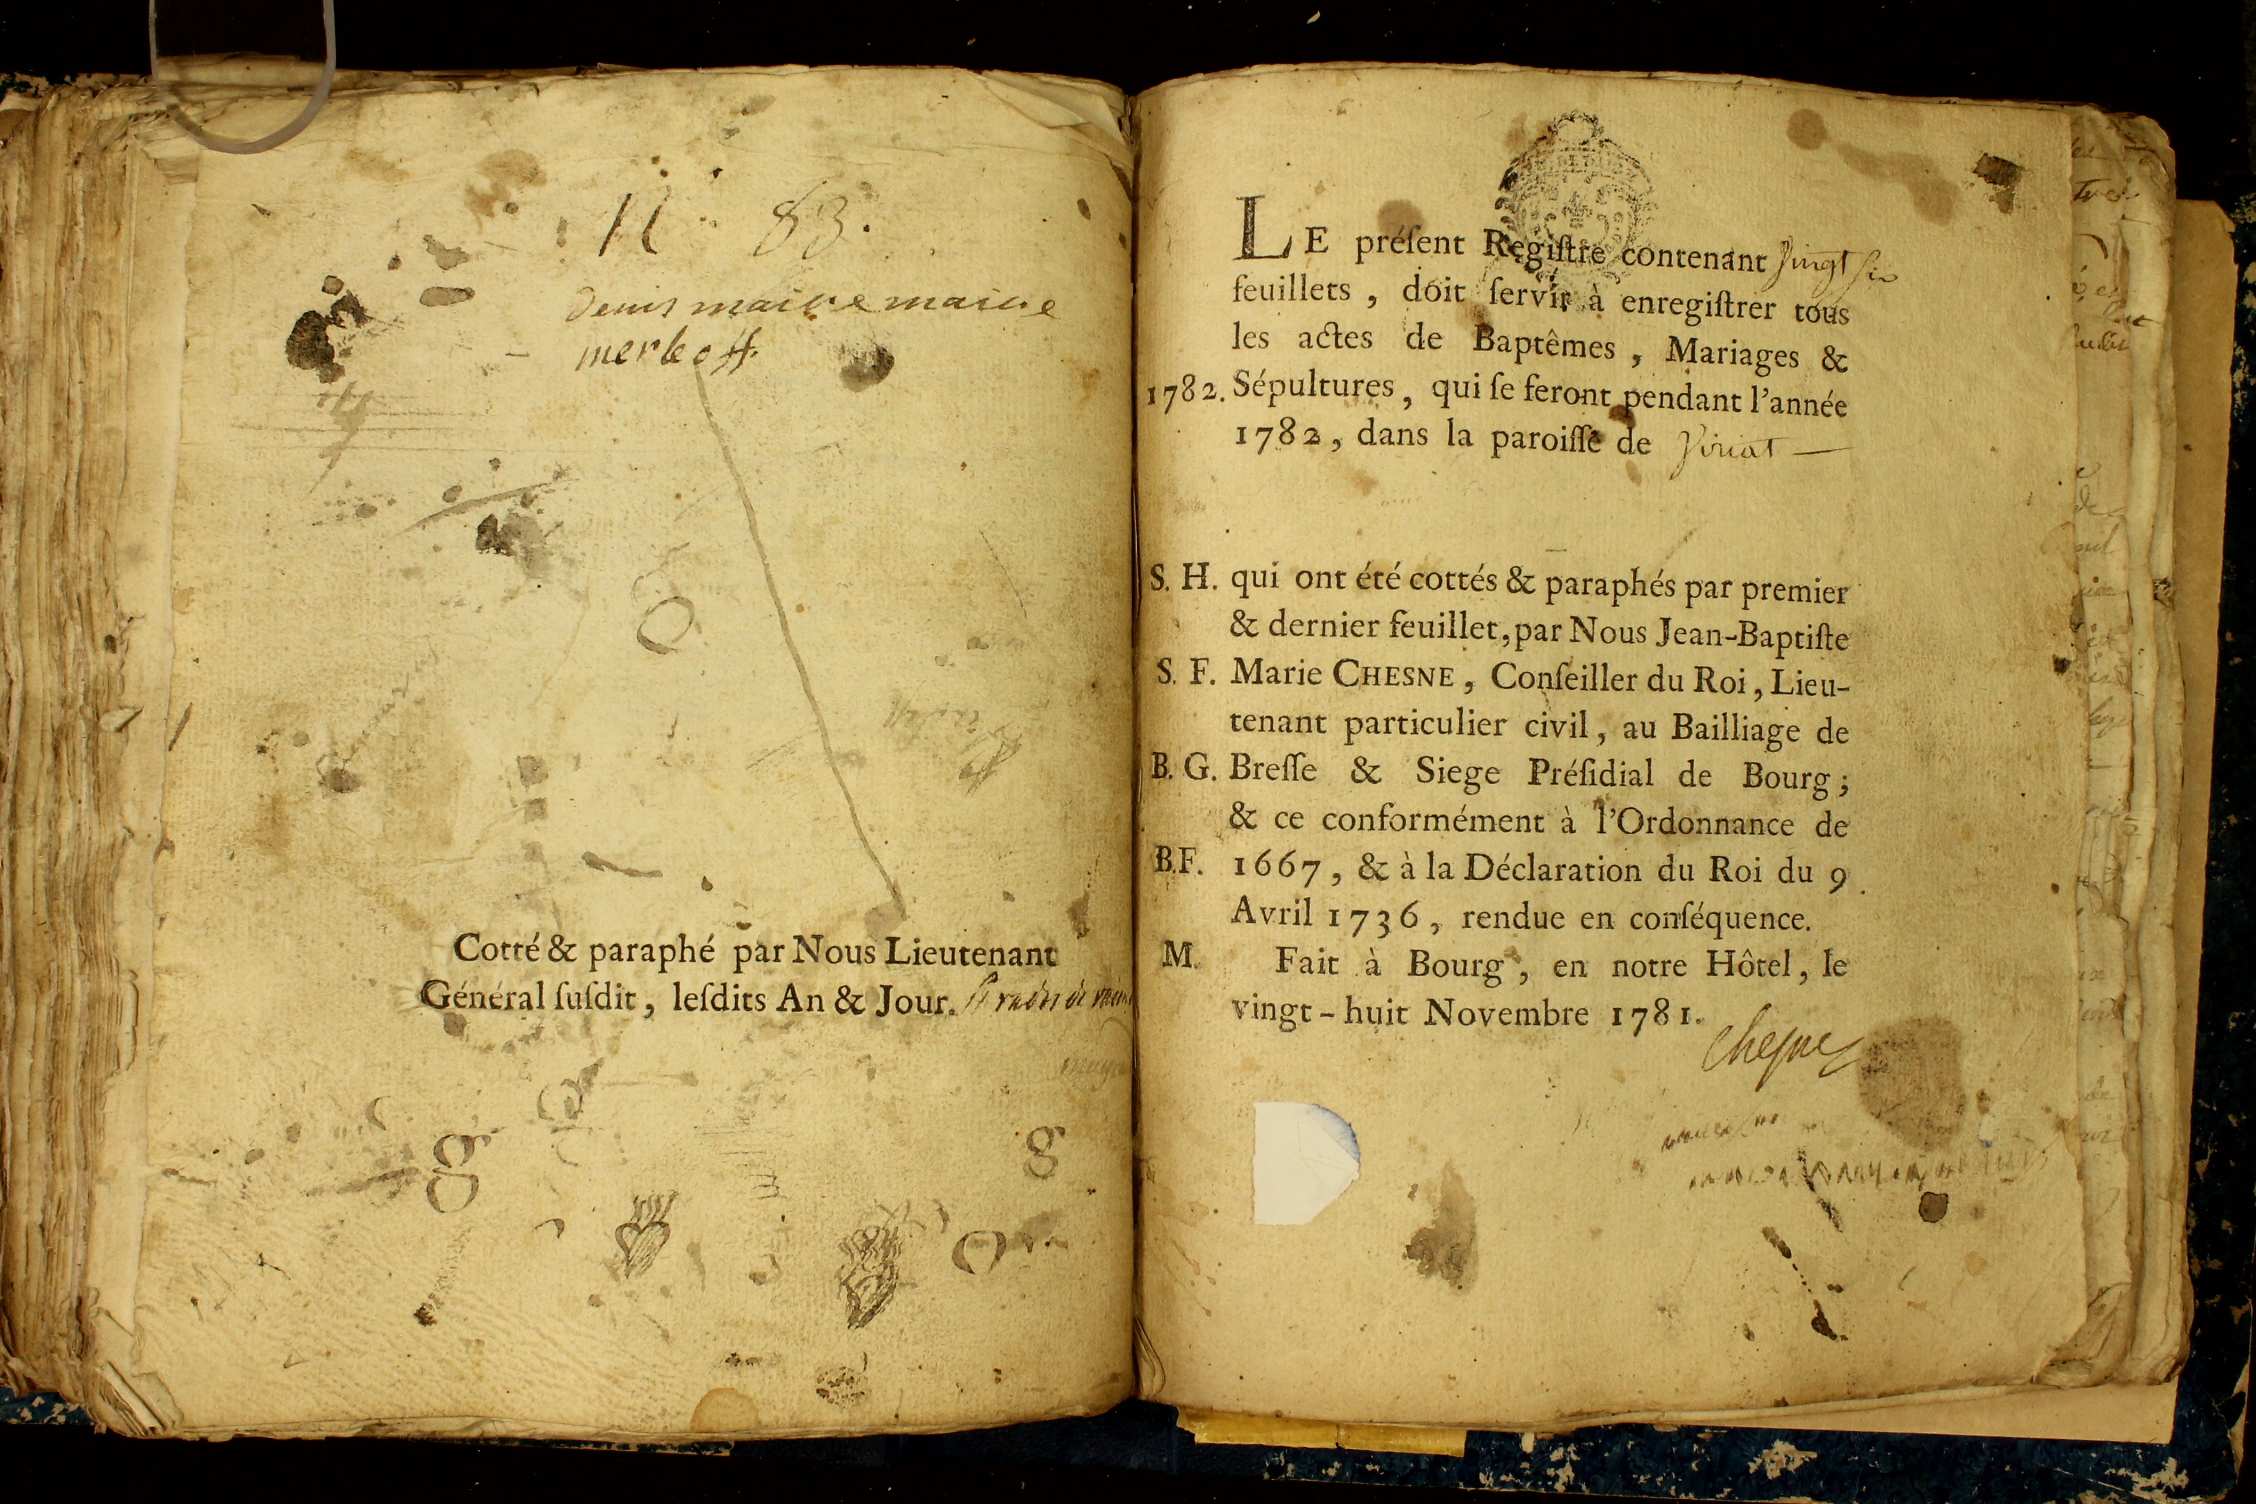 83.
denis maire maire
Cotté & paraphé par Nous Lieutenant
Général ſuſdit, leſdits An & Jour.
g
LE préſent Regiſtre contenant Vingt ſix
feuillets, doit ſervir à enregiſtrer tous
les actes de Baptêmes, Mariages &
1782. Sépultures, qui ſe feront pendant l'année
1782, dans la paroiſſe de Viriat —
S. H. qui ont été cottés & paraphés par premier
& dernier feuillet, par Nous Jean-Baptiſte
S. F. Marie CHESNE, Conſeiller du Roi, Lieu-
tenant particulier civil, au Bailliage de
B. G. Breſſe & Siege Préſidial de Bourg;
& ce conformément à l'Ordonnance de
B.F. 1667, & à la Déclaration du Roi du 9
Avril 1736, rendue en conſéquence.
M. Fait à Bourg, en notre Hôtel, le
vingt-huit Novembre 1781.
Chesne